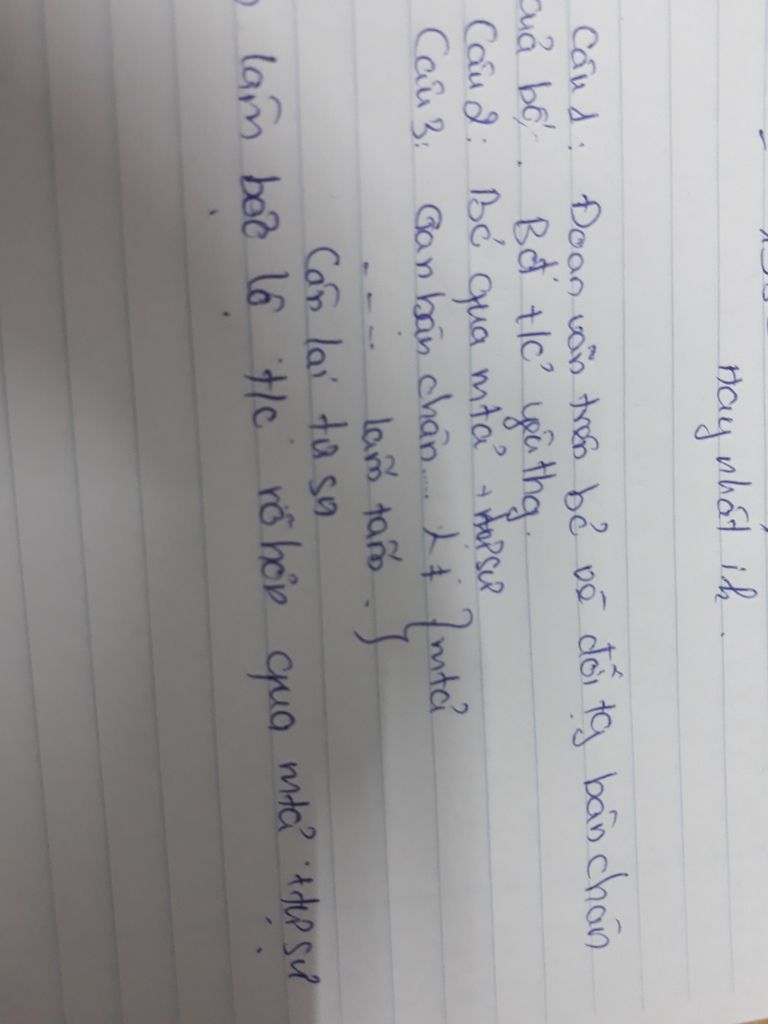 Hay nhất ik.
Câu 1: Đoạn văn trên bé về đối tg bàn chân
của bố. Bđ t/c yêu thg.
Câu 2: Bé qua mtả + tự sự
Câu 3: Gan bàn chân....
.... lấm tấm. } mtả
Còn lại tự sự
làm bộc lộ t/c rõ hơn qua mtả + tự sự.